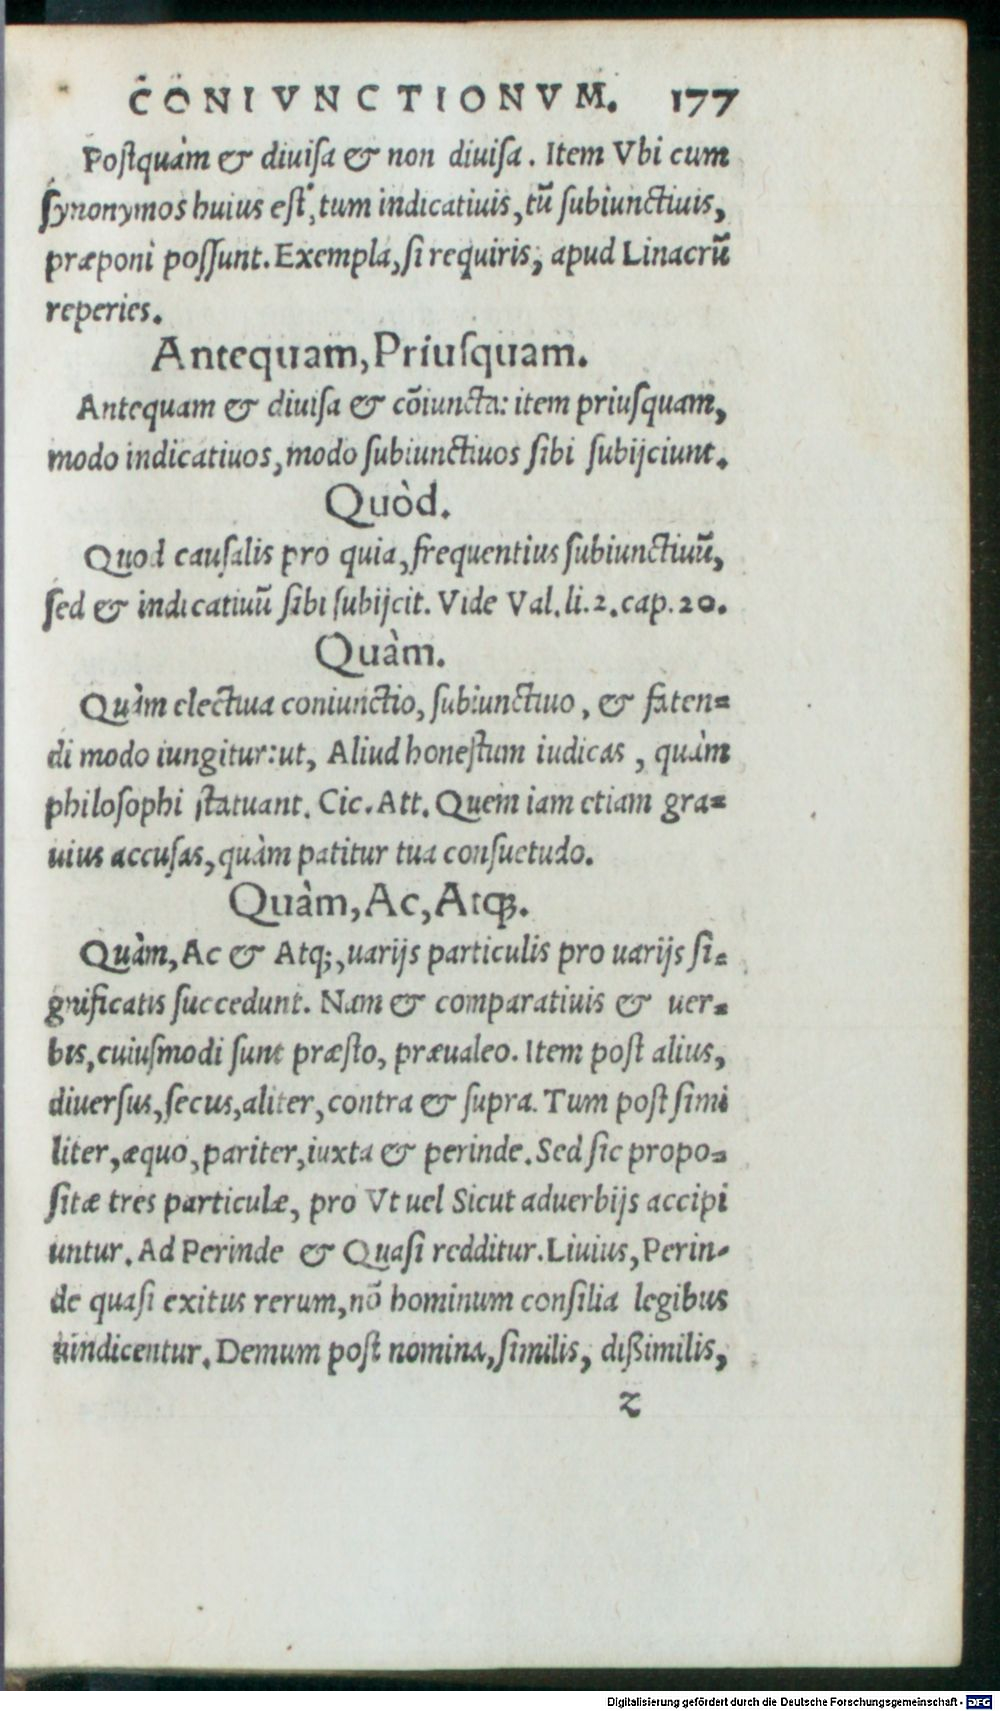 CONIVNCTIONVM. 177
Postquàm & diuisa & non diuisa. Item Vbi cum
synonymos huius est, tum indicatiuis, tū subiunctiuis,
præponi possunt. Exempla, si requiris, apud Linacrū
reperies.
Antequam, Priusquam.
Antequam & diuisa & cōiuncta: item priusquam,
modo indicatiuos, modo subiunctiuos sibi subijciunt.
Quòd.
Quod causalis pro quia, frequentius subiunctiuū,
sed & indicatiuū sibi subijcit. Vide Val. li. 2. cap. 20.
Quàm.
Quàm electiua coniunctio, subiunctiuo, & faten=
di modo iungitur: ut, Aliud honestum iudicas, quàm
philosophi statuant. Cic. Att. Quem iam etiam gra=
uius accusas, quàm patitur tua consuetudo.
Quàm, Ac, Atq;.
Quàm, Ac & Atq;, uarijs particulis pro uarijs si=
gnificatis succedunt. Nam & comparatiuis & uer=
bis, cuiusmodi sunt præsto, præualeo. Item post alius,
diuersus, secus, aliter, contra & supra. Tum post simi
liter, æquo, pariter, iuxta & perinde. Sed sic propo=
sitæ tres particulæ, pro Vt uel Sicut aduerbijs accipi
untur. Ad Perinde & Quasi redditur. Liuius, Perin-
de quasi exitus rerum, nō hominum consilia legibus
uindicentur. Demum post nomina, similis, dißimilis,
z
Digitalisierung gefördert durch die Deutsche Forschungsgemeinschaft - DFG